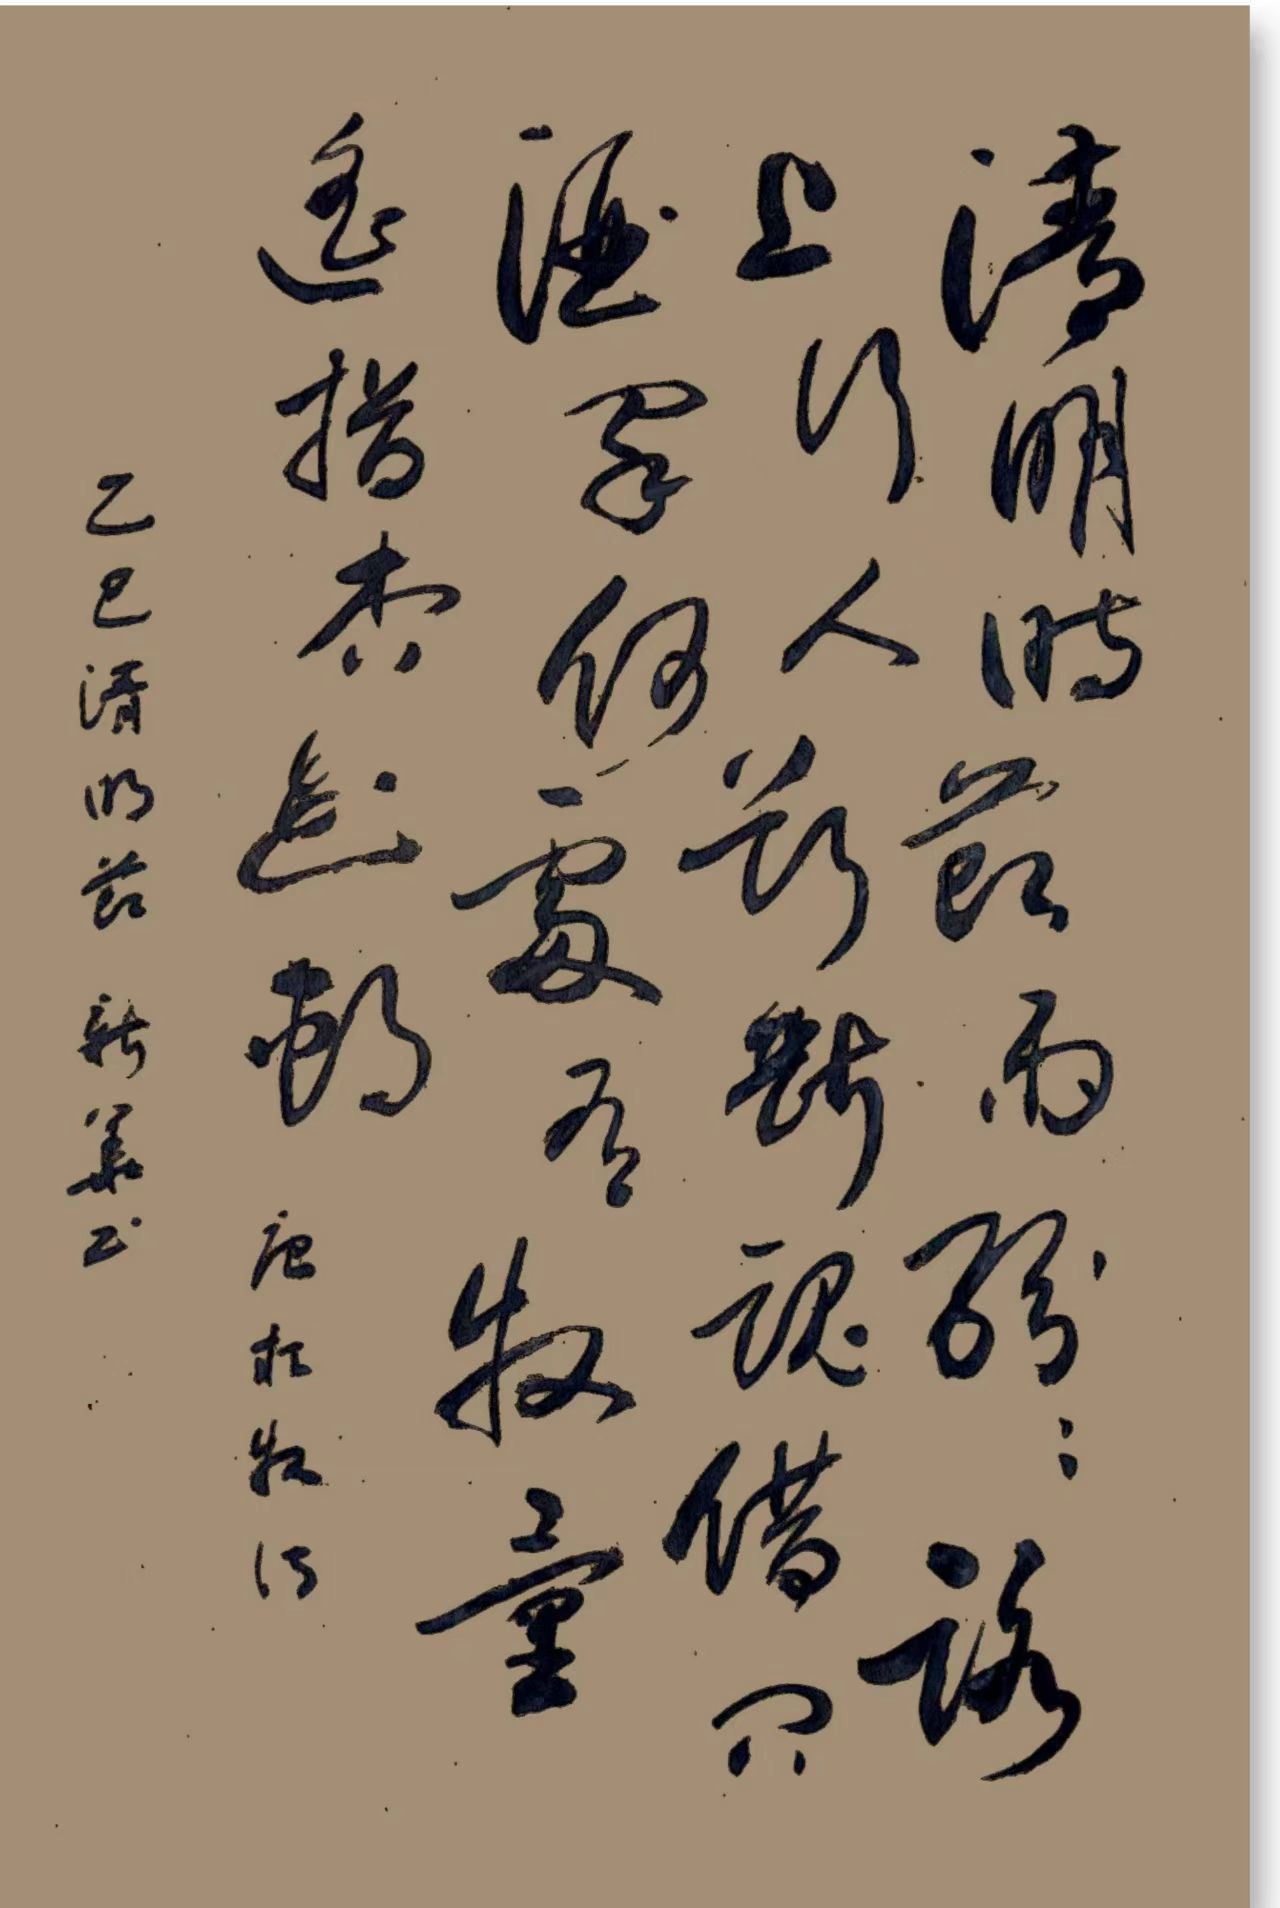 清明時節雨紛〻路
上行人欲斷魂借問
酒家何處有牧童
遥指杏花邨 唐杜牧诗
乙巳清明節 新華书